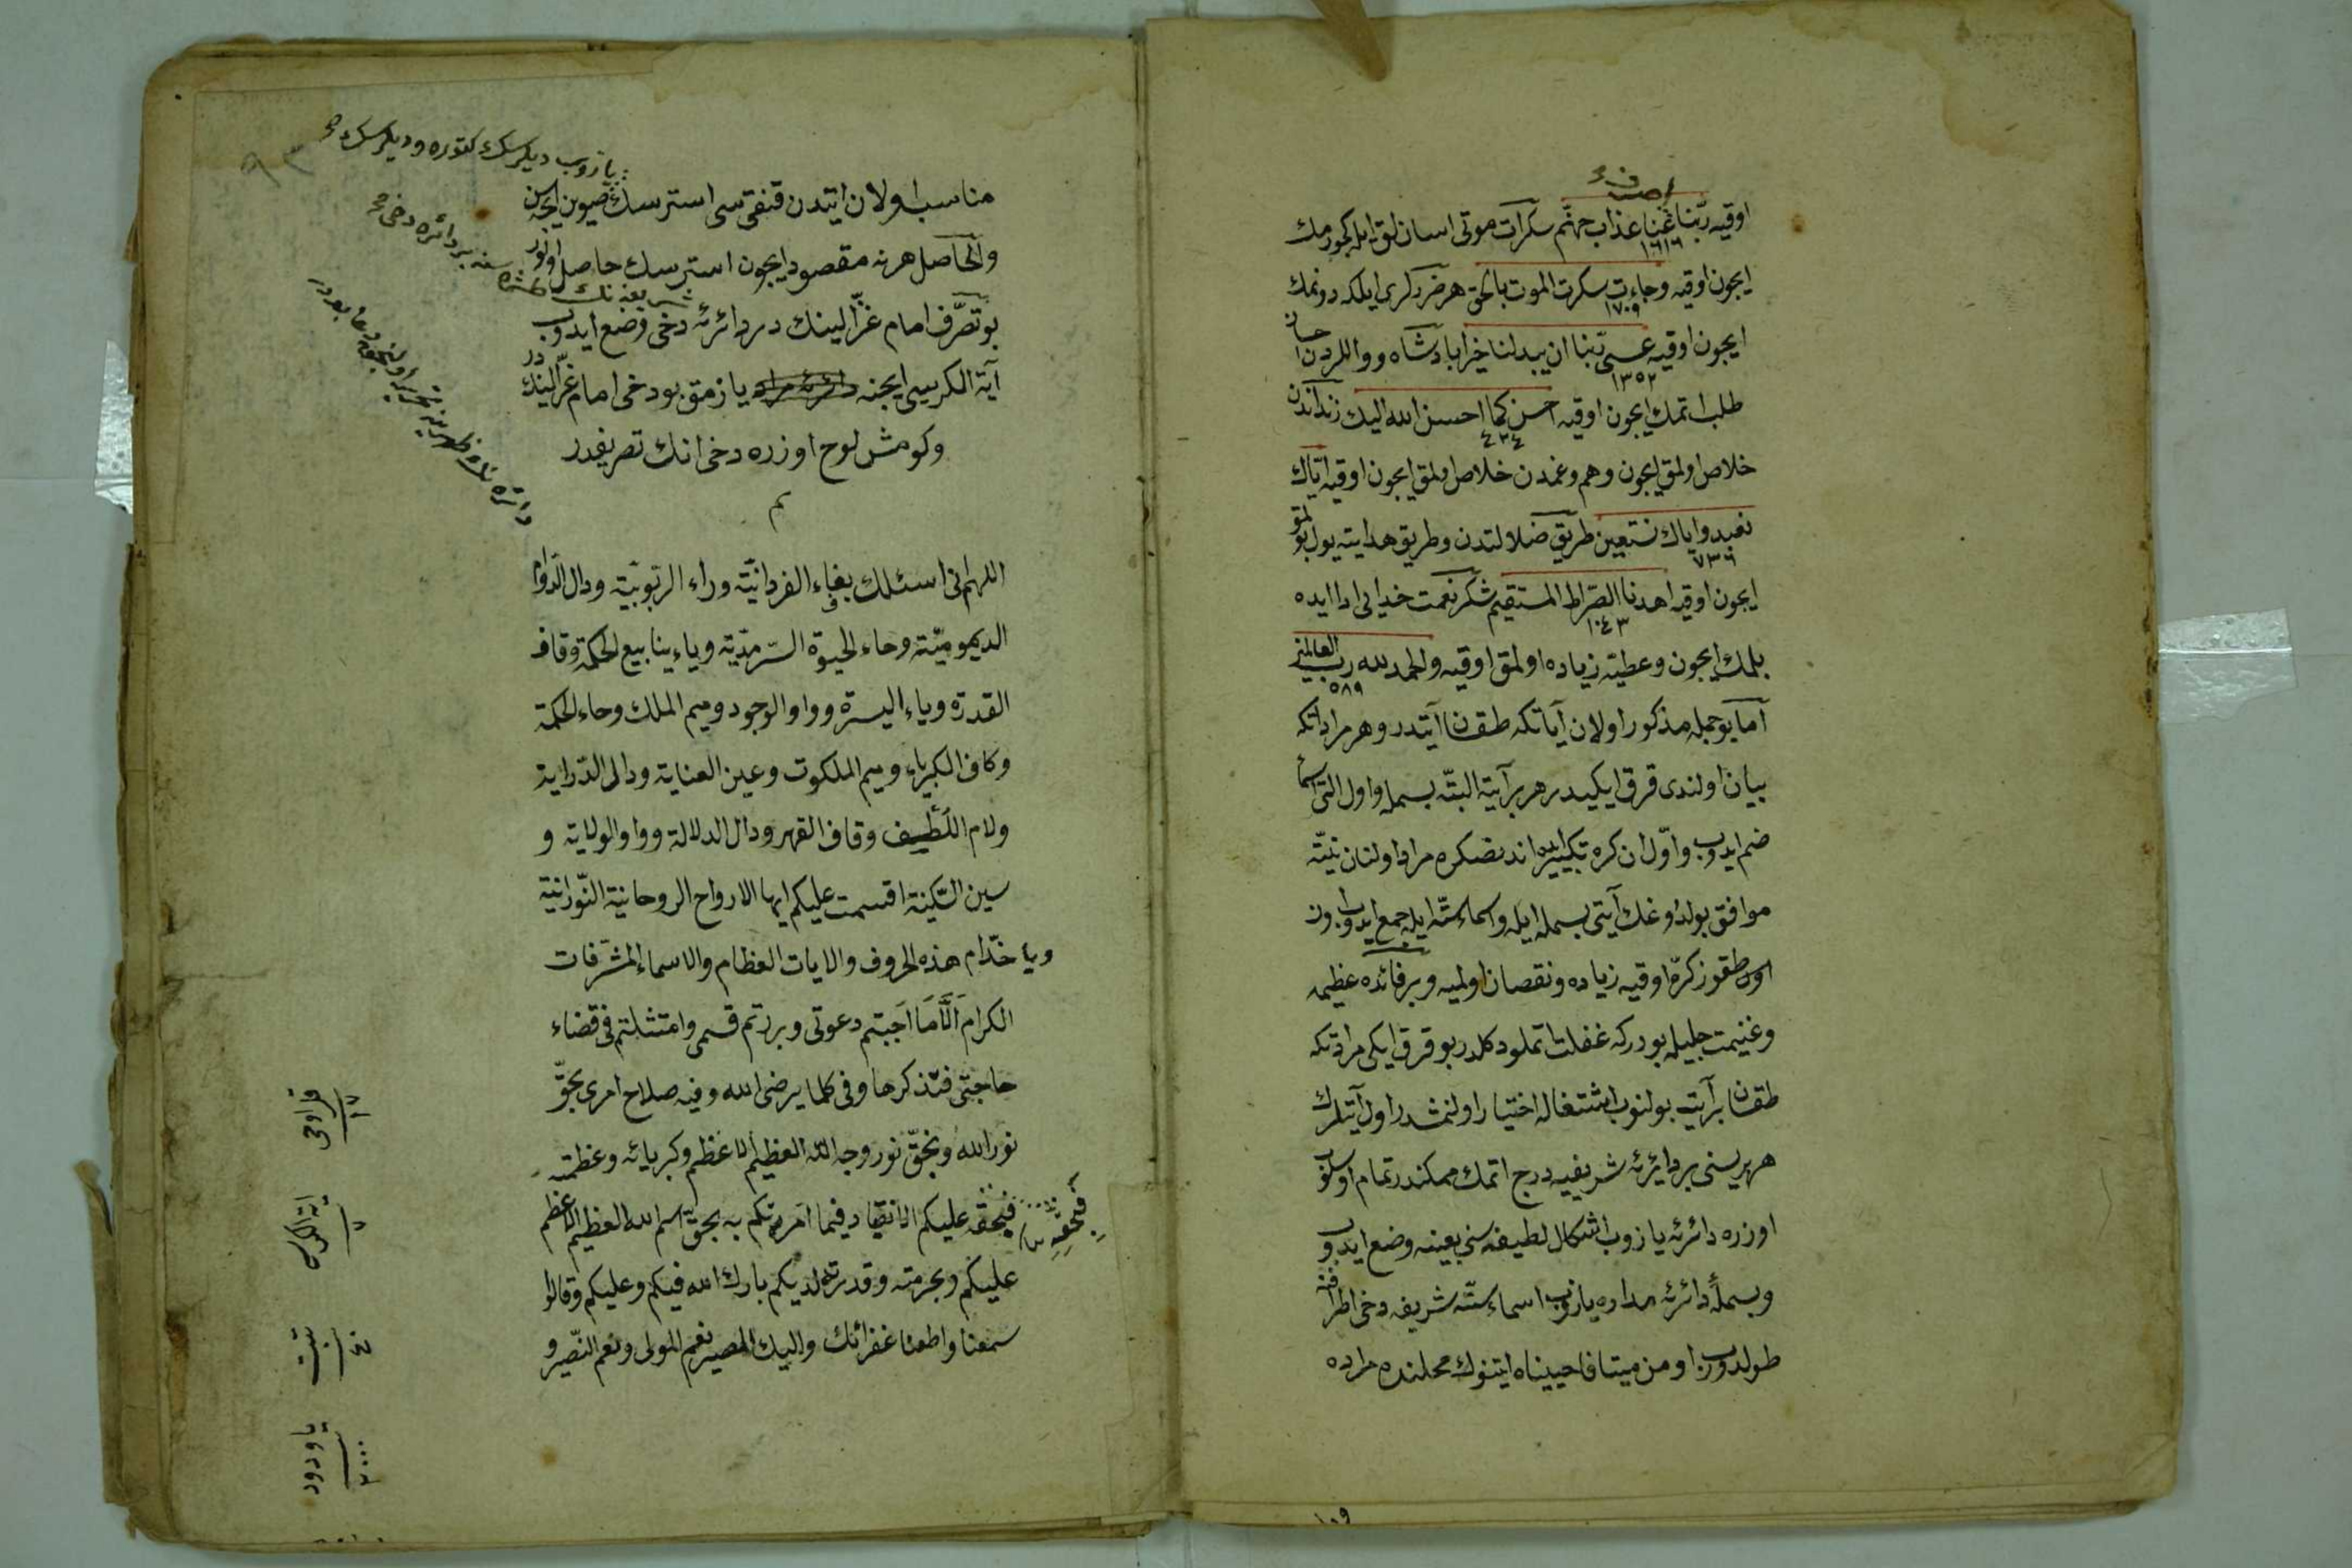 اوقیه ربنا عنا عذاب جهنم سكرات موتی اسان لق ایله كچورمك
١٦١٦
ایچون اوقیه وجاءت سكرت الموت بالحق هر ضررلری ایلكه دونمك
١٧٠٩
ایچون اوقیه عسی ربنا ان یبدلنا خیرا پادشاه و واللردن احسان
١٣٥٢
طلب اتمك ایچون اوقیه احسن كما احسن الله الیك زنداندن
٤٣٤
خلاص اولمق ایچون وهم وغمدن خلاص اولمق ایچون اوقیه ایاك
نعبد وایاك نستعین طریق ضلالتدن وطریق هدایته یول بولمق
٧٣٦
ایچون اوقیه اهدنا الصراط المستقیم شكر نعمت خدایی ادا ایده
١٠٤٣
بلمك ایچون وعطیه زیاده اولمق اوقیه والحمد لله رب العالمین
٥٨٩
اما بو جمله مذكور اولان آیاتكه طقسان آیتدر وهر مرادكه
بیان اولندی قرق ایكیدر هر بر آیته البته بسمله و اول التی اسما
ضم ایدوب واول ان كره تكبیر ایده اندنصكره مراد اولنان نیته
موافق بولدوغك آیتی بسمله ایله واسماء سته ایله جمع ایدوب اون
اون طقوز كره اوقیه زیاده ونقصان اولمیه وبر فائده عظیمه
وغنیمت جلیله بودركه غفلت اتملو دكلدر بو قرق ایكی مرادكه
طقسان بر آیته بولنوب اشتغاله اختیار اولنمشدر اول آیتلرك
هر بریسنی بر دایرئه شریفیه درج اتمك ممكندر تمام اوسلوب
اوزره دائرئه یازوب اشكال لطیفه سنی بعینه وضع ایدوب
وبسمله دائرئه مداره یازوب اسماء سته شریفه دخی اطرافنه
طولدوروب اومن میتا فاحییناه ایتنوك محلنده مراده
مناسب اولان ایتدن قنقی سی استرسك قیوین ایچون
والحاصل هر نه مقصود ایچون استرسك حاصل اولور
بو تصرف امام غزالینك در دائرئه دخی وضع ایدوب
آیة الكرسی ایچنه یازمق بو دخی امام غزالینك در
وكومش لوح اوزره دخی انك تصریفدر
تم
اللهم انی اسئلك بفاء الفردانیة وراء الربوبیة ودال الدوام
الدیمومیة وحاء الحیوة السرمدیة ویاء ینابیع الحكمة وقاف
القدرة ویاء الیسرة وواو الوجود ومیم الملك وحاء الحكمة
وكاف الكبریاء ومیم الملكوت وعین العنایة ودال الدرایة
ولام اللطیف وقاف القهر ودال الدلالة وواو الولایة و
سین السكینة اقسمت علیكم ایها الارواح الروحانیة النورانیة
ویا خدام هذه الحروف والایات العظام والاسماء المشرفات
الكرام الا ما اجبتم دعوتی وبررتم قسمی وامتثلتم فی قضاء
حاجتی فتذكرها وفی كلما یرضی الله وفیه صلاح امری بحق
نور الله وبحق نور وجه الله العظیم الاعظم وكبریائه وعظمته
فبحقه علیكم الانقیاد فیما امرتكم به بحق اسم الله العظیم الاعظم
علیكم وبحرمته وقدرته لدیكم بارك الله فیكم وعلیكم وقالوا
سمعنا واطعنا غفرانك والیك المصیر نعم المولی ونعم النصیر و
یازوب دیلرسك كتوره ودیلرسك صح
٩٣
شریفه نك طشره سنه بر دائره دخی صح
فبحقه
ایة الكرسی
٧
تبت
یا ودود
٢٠٠٠